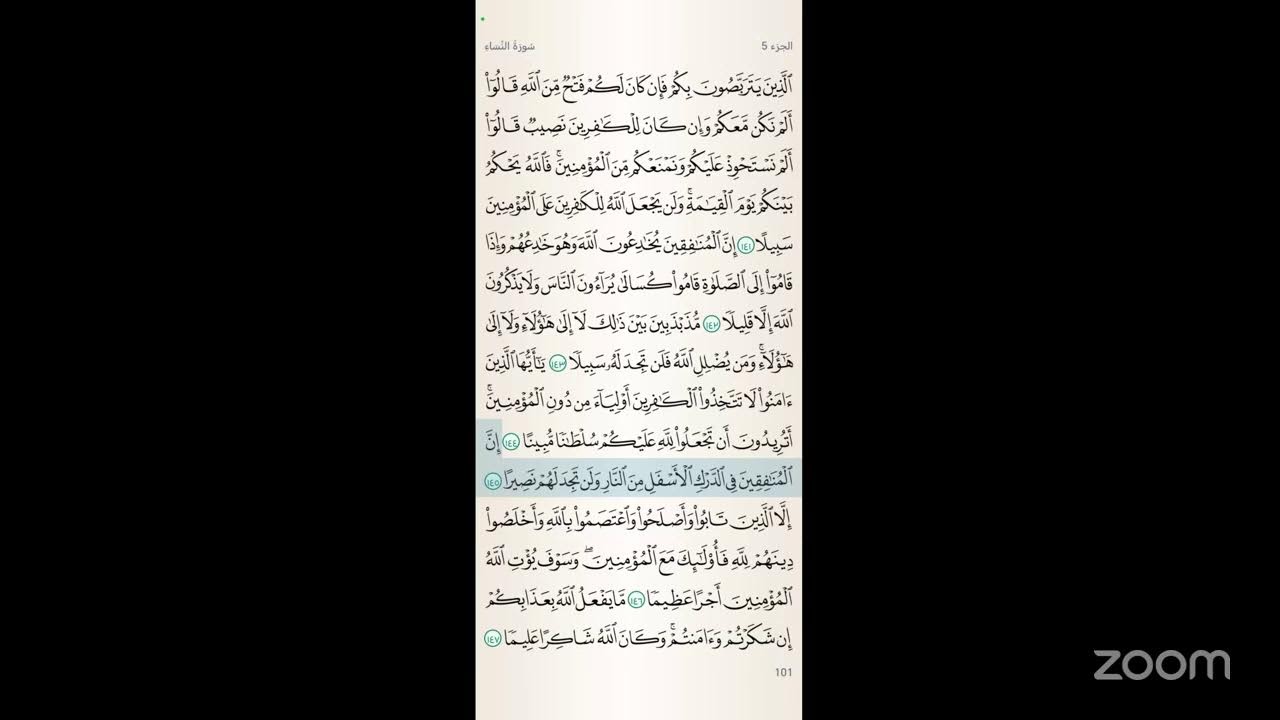 الجزء 5
سُورَةُ النِّسَاءِ
ٱلَّذِينَ يَتَرَبَّصُونَ بِكُمْ فَإِن كَانَ لَكُمْ فَتْحٌ مِّنَ ٱللَّهِ قَالُوٓا۟
أَلَمْ نَكُن مَّعَكُمْ وَإِن كَانَ لِلْكَـٰفِرِينَ نَصِيبٌ قَالُوٓا۟
أَلَمْ نَسْتَحْوِذْ عَلَيْكُمْ وَنَمْنَعْكُم مِّنَ ٱلْمُؤْمِنِينَ ۚ فَٱللَّهُ يَحْكُمُ
بَيْنَكُمْ يَوْمَ ٱلْقِيَـٰمَةِ ۗ وَلَن يَجْعَلَ ٱللَّهُ لِلْكَـٰفِرِينَ عَلَى ٱلْمُؤْمِنِينَ
سَبِيلًا ١٤١ إِنَّ ٱلْمُنَـٰفِقِينَ يُخَـٰدِعُونَ ٱللَّهَ وَهُوَ خَـٰدِعُهُمْ وَإِذَا
قَامُوٓا۟ إِلَى ٱلصَّلَوٰةِ قَامُوا۟ كُسَالَىٰ يُرَآءُونَ ٱلنَّاسَ وَلَا يَذْكُرُونَ
ٱللَّهَ إِلَّا قَلِيلًا ١٤٢ مُّذَبْذَبِينَ بَيْنَ ذَٰلِكَ لَآ إِلَىٰ هَـٰٓؤُلَآءِ وَلَآ إِلَىٰ
هَـٰٓؤُلَآءِ ۚ وَمَن يُضْلِلِ ٱللَّهُ فَلَن تَجِدَ لَهُۥ سَبِيلًا ١٤٣ يَـٰٓأَيُّهَا ٱلَّذِينَ
ءَامَنُوا۟ لَا تَتَّخِذُوا۟ ٱلْكَـٰفِرِينَ أَوْلِيَآءَ مِن دُونِ ٱلْمُؤْمِنِينَ ۚ
أَتُرِيدُونَ أَن تَجْعَلُوا۟ لِلَّهِ عَلَيْكُمْ سُلْطَـٰنًا مُّبِينًا ١٤٤ إِنَّ
ٱلْمُنَـٰفِقِينَ فِى ٱلدَّرْكِ ٱلْأَسْفَلِ مِنَ ٱلنَّارِ وَلَن تَجِدَ لَهُمْ نَصِيرًا ١٤٥
إِلَّا ٱلَّذِينَ تَابُوا۟ وَأَصْلَحُوا۟ وَٱعْتَصَمُوا۟ بِٱللَّهِ وَأَخْلَصُوا۟
دِينَهُمْ لِلَّهِ فَأُو۟لَـٰٓئِكَ مَعَ ٱلْمُؤْمِنِينَ ۖ وَسَوْفَ يُؤْتِ ٱللَّهُ
ٱلْمُؤْمِنِينَ أَجْرًا عَظِيمًا ١٤٦ مَّا يَفْعَلُ ٱللَّهُ بِعَذَابِكُمْ
إِن شَكَرْتُمْ وَءَامَنتُمْ ۚ وَكَانَ ٱللَّهُ شَاكِرًا عَلِيمًا ١٤٧
101
zoom